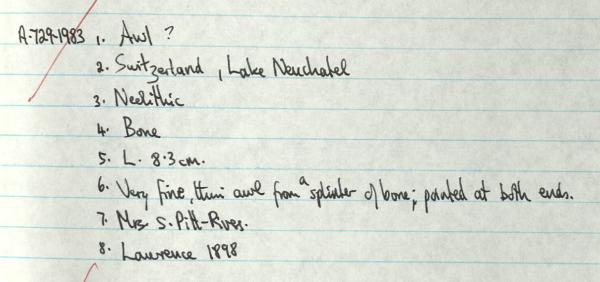 A.729.1983 1. Awl ?
2. Switzerland, Lake Neuchatel
3. Neolithic
4. Bone
5. L. 8.3cm.
6. Very fine, thin awl from a splinter of bone; pointed at both ends.
7. Mrs. S. Pitt-Rivers.
8. Lawrence 1898